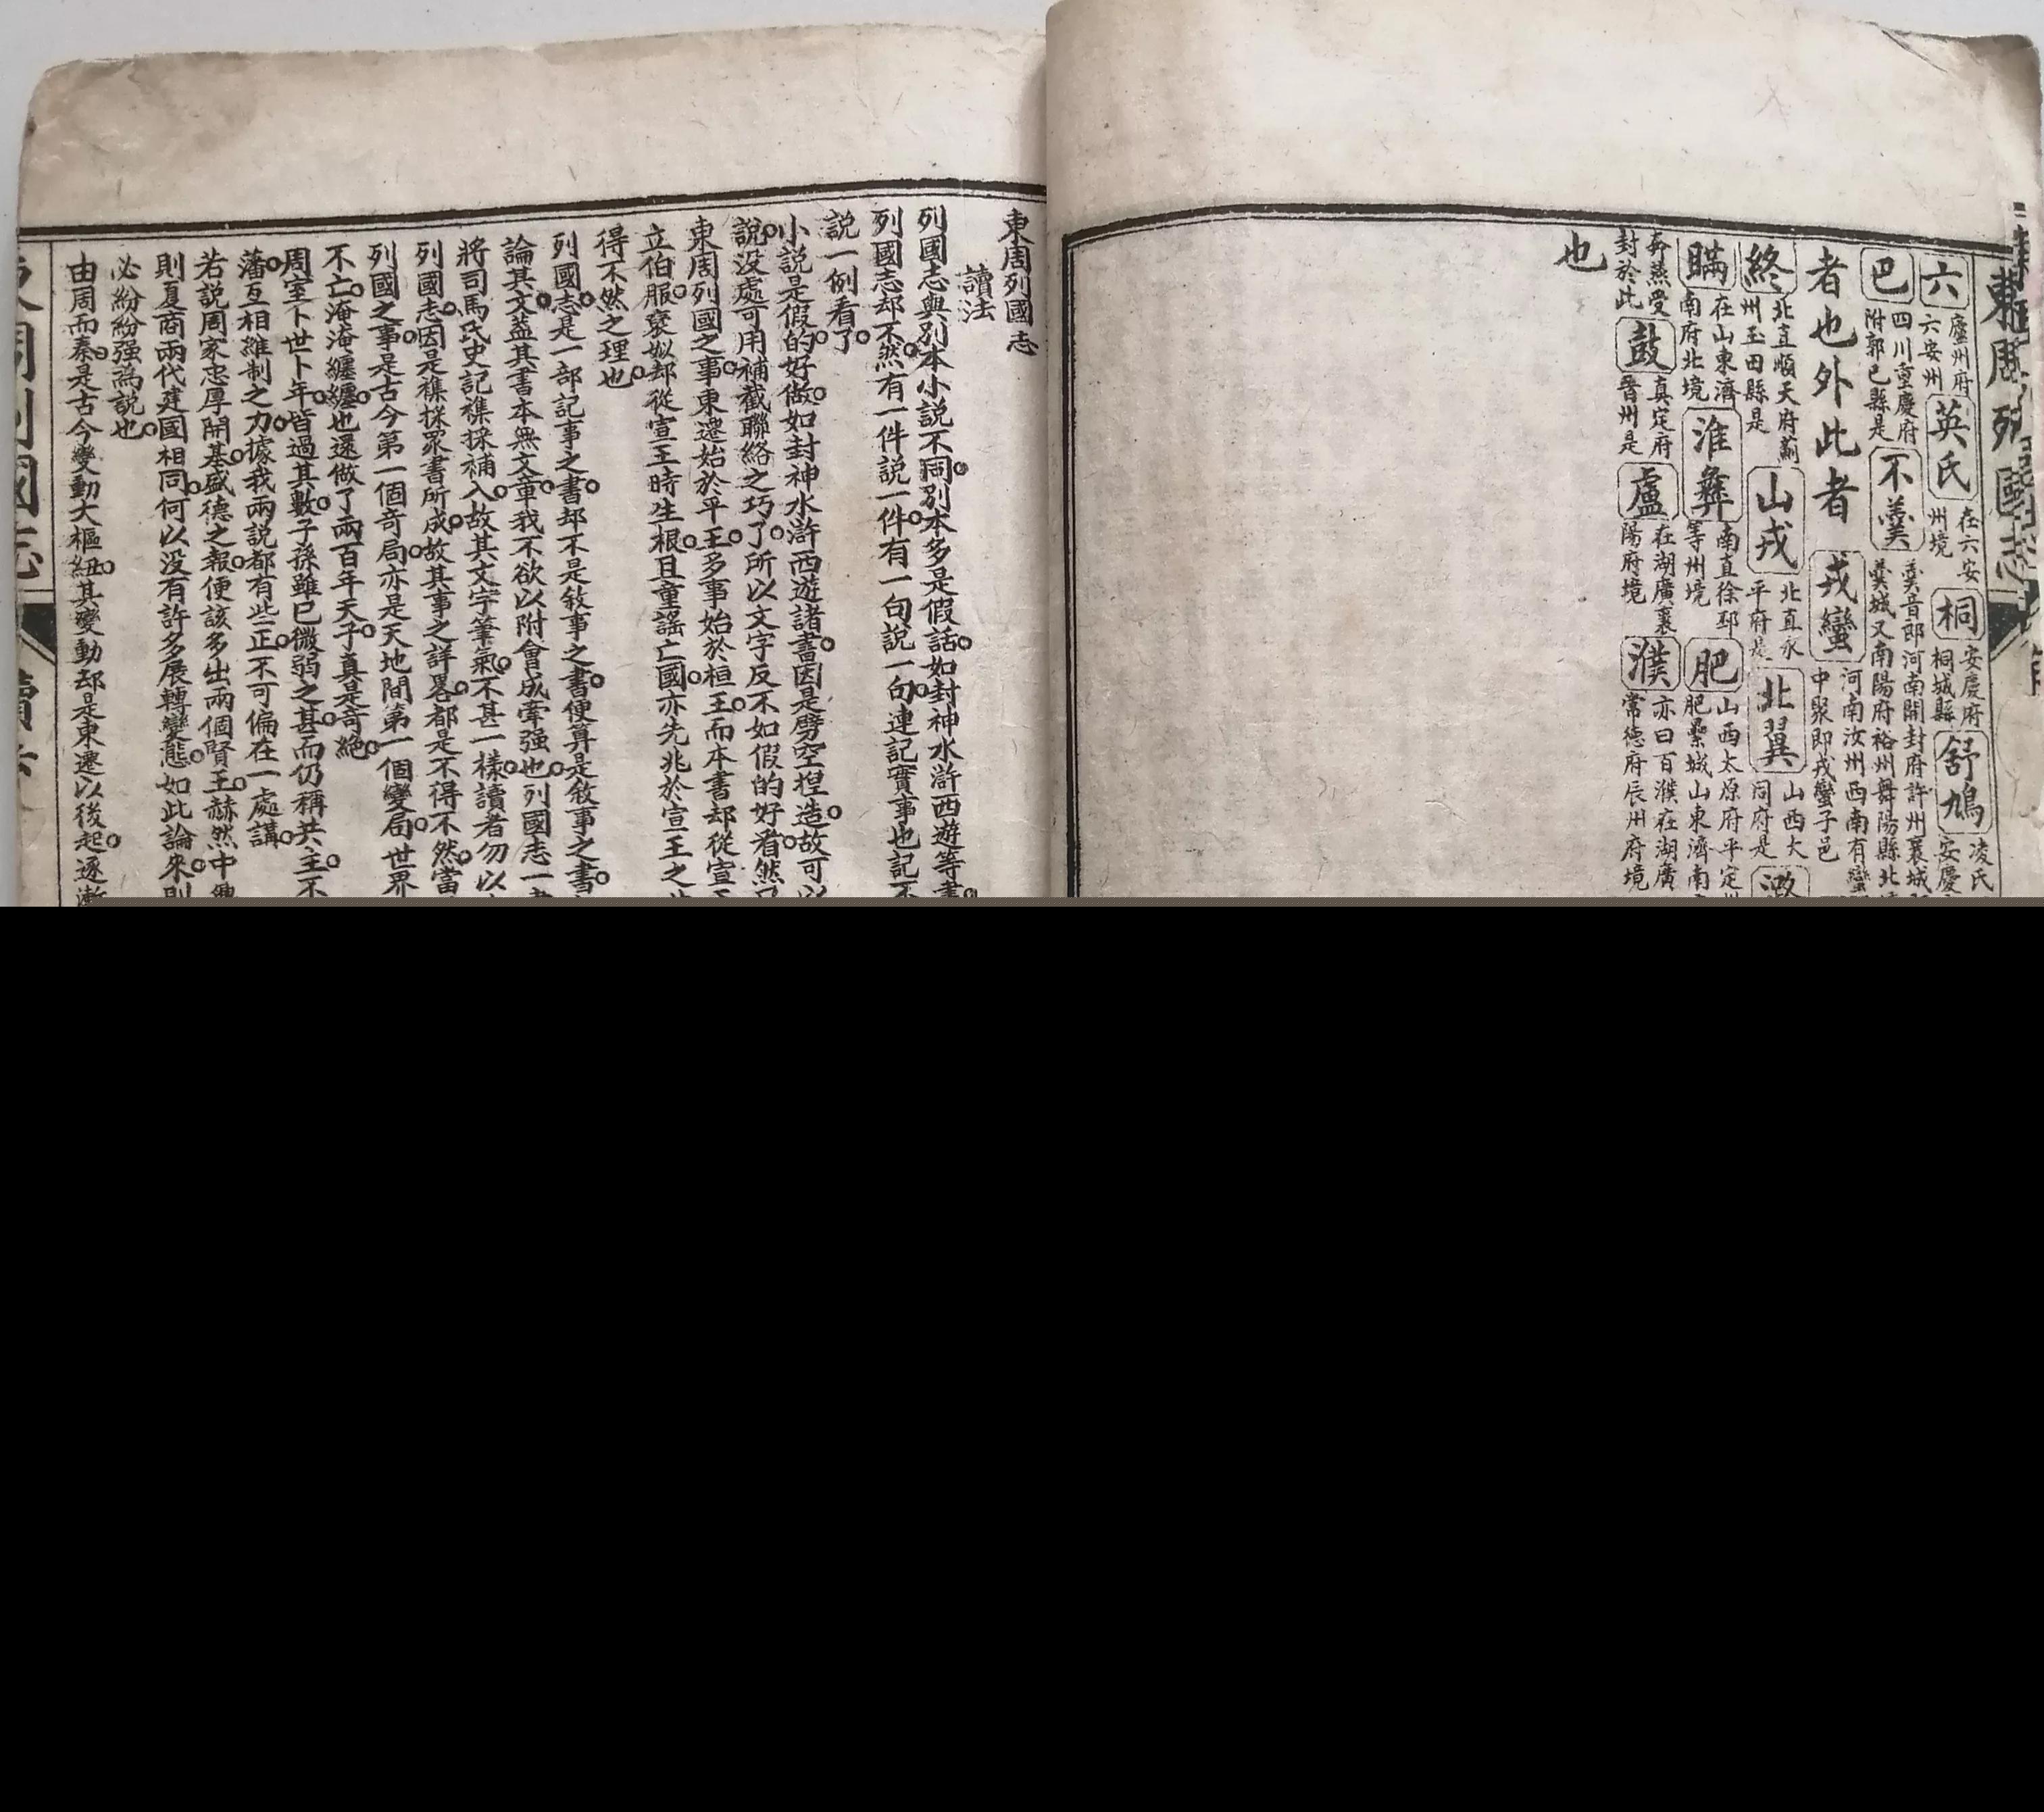 東周列國志
六 廬州府六安州 英氏 在六安州境 桐 安慶府桐城縣 舒鳩 凌氏安慶
巴 四川重慶府附郭巴縣是 不羹 羹音郎河南開封府許州襄城 羹城又南陽府裕州舞陽縣北
者也外此者 戎蠻 河南汝州西南有蠻 中聚即戎蠻子邑
終 北直順天府薊州玉田縣是 山戎 北直永平府是 北翼 山西大同府是 潞
瞞 在山東濟南府北境 淮彝 南直徐邳等州境 肥 山西太原府平定 肥纍城山東濟南
奔燕受封於此 鼓 真定府晉州是 盧 在湖廣襄陽府境 濮 亦曰百濮在湖廣常德府辰州府境
也
東周列國志
讀法
列國志與別本小說不同別本多是假話如封神水滸西遊等書
列國志却不然有一件說一件有一句說一句連記實事也記不
說一例看了
小說是假的好做如封神水滸西遊諸書因是劈空揑造故可以
說没處可用補截聯絡之巧了所以文字反不如假的好看然
東周列國之事東遷始於平王多事始於桓王而本書却從宣王
立伯服褒姒却從宣王時生根且童謠亡國亦先兆於宣王之
得不然之理也
列國志是一部記事之書却不是敘事之書便算是敘事之書
論其文葢其書本無文章我不欲以附會成牽强也列國志一書
將司馬氏史記襍採補入故其文字筆氣不甚一樣讀者勿以
列國志因是襍採眾書所成故其事之詳畧都是不得不然當
列國之事是古今第一個奇局亦是天地間第一個變局世界
不亡淹淹纏纏也還做了兩百年天子真是奇絶
周室卜世卜年皆過其數子孫雖已微弱之甚而仍稱共主不
藩互相維制之力據我兩說都有些正不可偏在一處講
若說周家忠厚開基盛德之報便該多出兩個賢王赫然中興
則夏商兩代建國相同何以没有許多展轉變態如此論來則
必紛紛强爲說也
由周而秦是古今變動大樞紐其變動却是東遷以後起逐漸
東周列國志
讀法